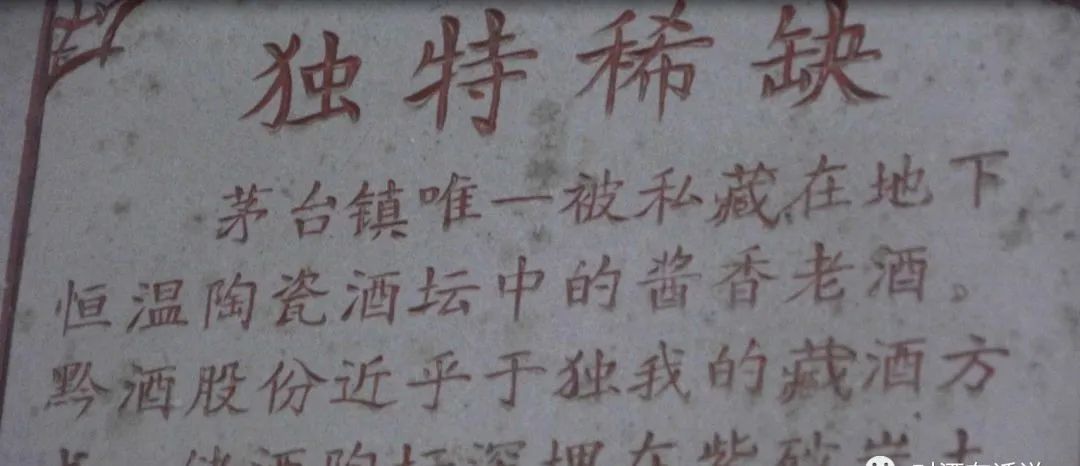 独特稀缺
茅台镇唯一被私藏在地下
恒温陶瓷酒坛中的酱香老酒。
黔酒股份近乎于独我的藏酒方
储酒陶坛深埋在紫砂岩